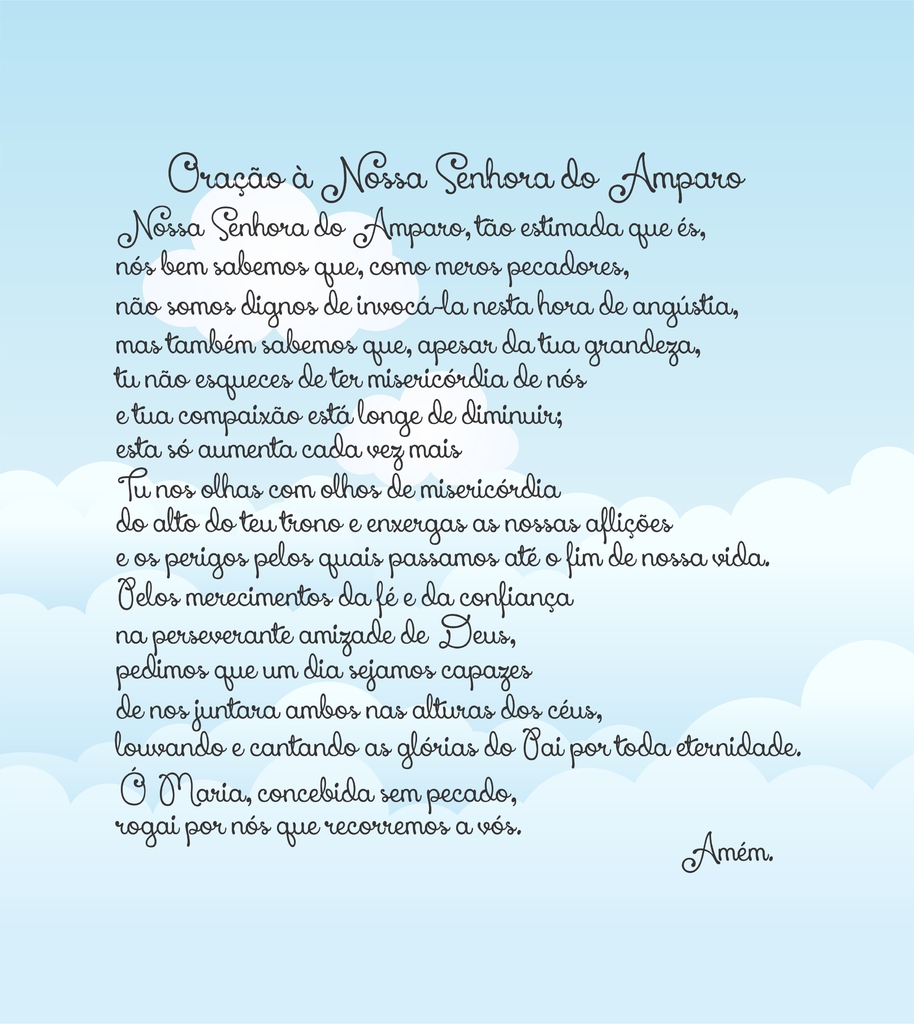 Oração à Nossa Senhora do Amparo
Nossa Senhora do Amparo, tão estimada que és,
nós bem sabemos que, como meros pecadores,
não somos dignos de invocá-la nesta hora de angústia,
mas também sabemos que, apesar da tua grandeza,
tu não esqueces de ter misericórdia de nós
e tua compaixão está longe de diminuir;
esta só aumenta cada vez mais
Tu nos olhas com olhos de misericórdia
do alto do teu trono e enxergas as nossas aflições
e os perigos pelos quais passamos até o fim de nossa vida.
Pelos merecimentos da fé e da confiança
na perseverante amizade de Deus,
pedimos que um dia sejamos capazes
de nos juntara ambos nas alturas dos céus,
louvando e cantando as glórias do Pai por toda eternidade.
Ó Maria, concebida sem pecado,
rogai por nós que recorremos a vós.
Amém.